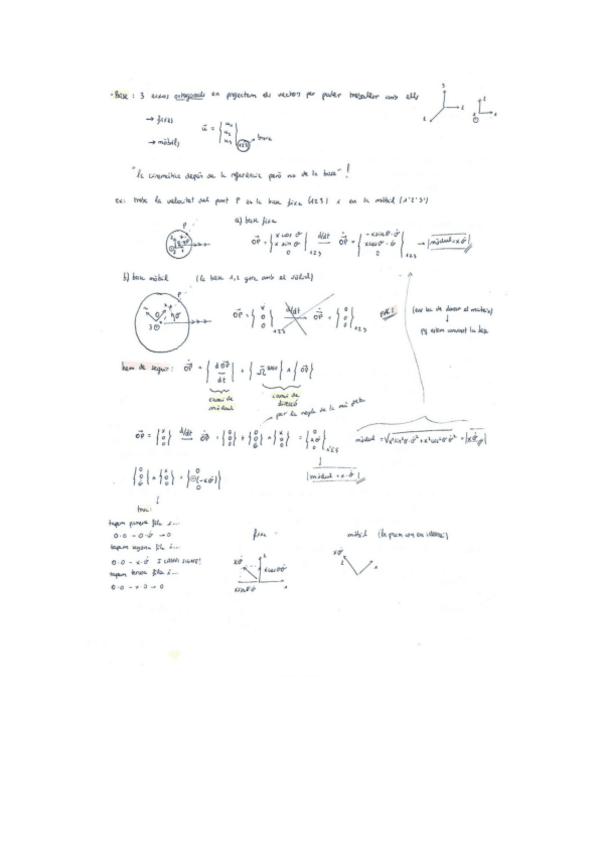 ·Base: 3 eixos ortogonals on projectem els vectors per poder treballar amb ells
→ fixes
→ mòbils
ū = { u₁ u₂ u₃ } 123 → base
"la cinemàtica depèn de la referència però no de la base" !
ex: troba la velocitat del punt P en la base fixa (123) i en la mòbil (1'2'3')
a) base fixa
OP = { x cos θ x sin θ 0 } 123 d/dt → OP = { -x sin θ · θ̇ x cos θ · θ̇ 0 } 123 → |mòdul = x θ̇|
b) base mòbil (la base 1,2 gira amb el sòlid)
OP = { x 0 0 } 123 d/dt → OP = { 0 0 0 } 123
hem de seguir: OP = { dOP/dt } + { Ω base } ∧ { OP }
canvi de mòdul
canvi de direcció
per la regla de la mà dreta
OP = { x 0 0 } d/dt → OP = { 0 0 0 } + { 0 0 θ̇ } ∧ { x 0 0 } = { 0 x θ̇ 0 } 1'2'3'
mòdul = √x² sin² θ · θ̇² + x² cos² θ · θ̇² = |x θ̇|
|mòdul = x · θ̇|
{ 0 0 θ̇ } ∧ { x 0 0 } = { 0 ⊖(-x θ̇) 0 }
truc:
tapem primera fila i...
0·0 - 0·θ̇ → 0
tapem segona fila i...
0·0 - x·θ̇ I CANVI SIGNE!
tapem tercera fila i...
0·0 - x·0 → 0
fixa
x θ̇
x cos θ θ̇
x sin θ θ̇
mòbil
x θ̇